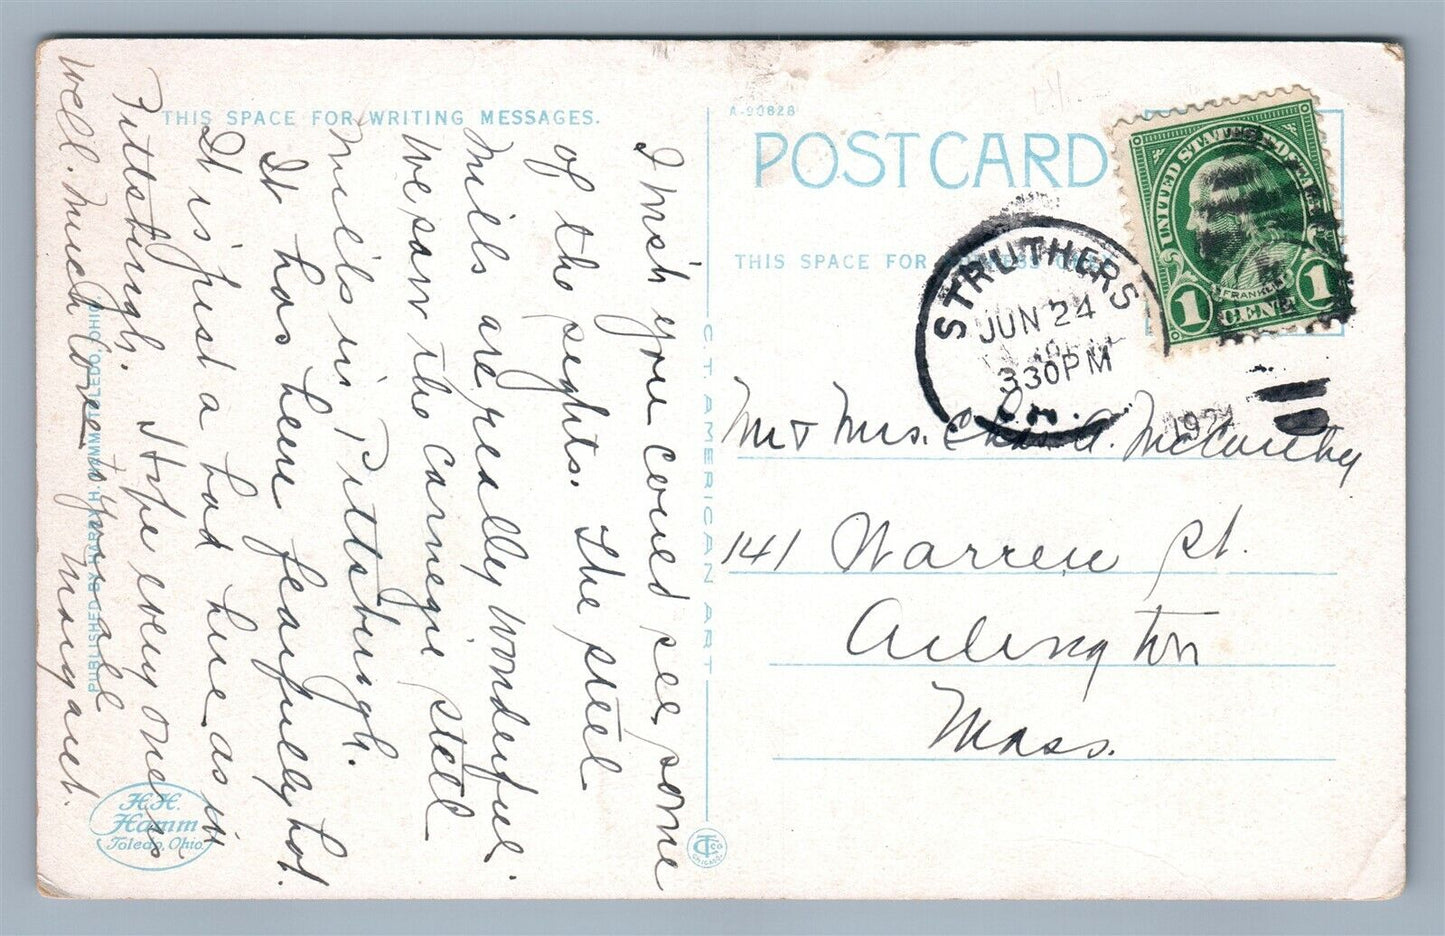 THIS SPACE FOR WRITING MESSAGES.
I wish you could see some
of the sights. The steel
mills are really wonderful.
We saw the Carnegie steel
mills in Pittsburgh.
It has been fearfully hot.
It is just a hot here as in
Pittsburgh. Hope every one is
well. Much love to you all
Margaret.
PUBLISHED BY HARRY H. HAMM, TOLEDO, OHIO
H.H.
Hamm
Toledo, Ohio.
C. T. AMERICAN ART
CHICAGO
A-90828
POST CARD
THIS SPACE FOR ADDRESS ONLY
UNITED STATES POSTAGE
FRANKLIN
1 CENT 1
STRUTHERS
JUN 24
330PM
O.
192
Mr & Mrs. Chas A. McCarthy
141 Warren St.
Arlington
Mass.